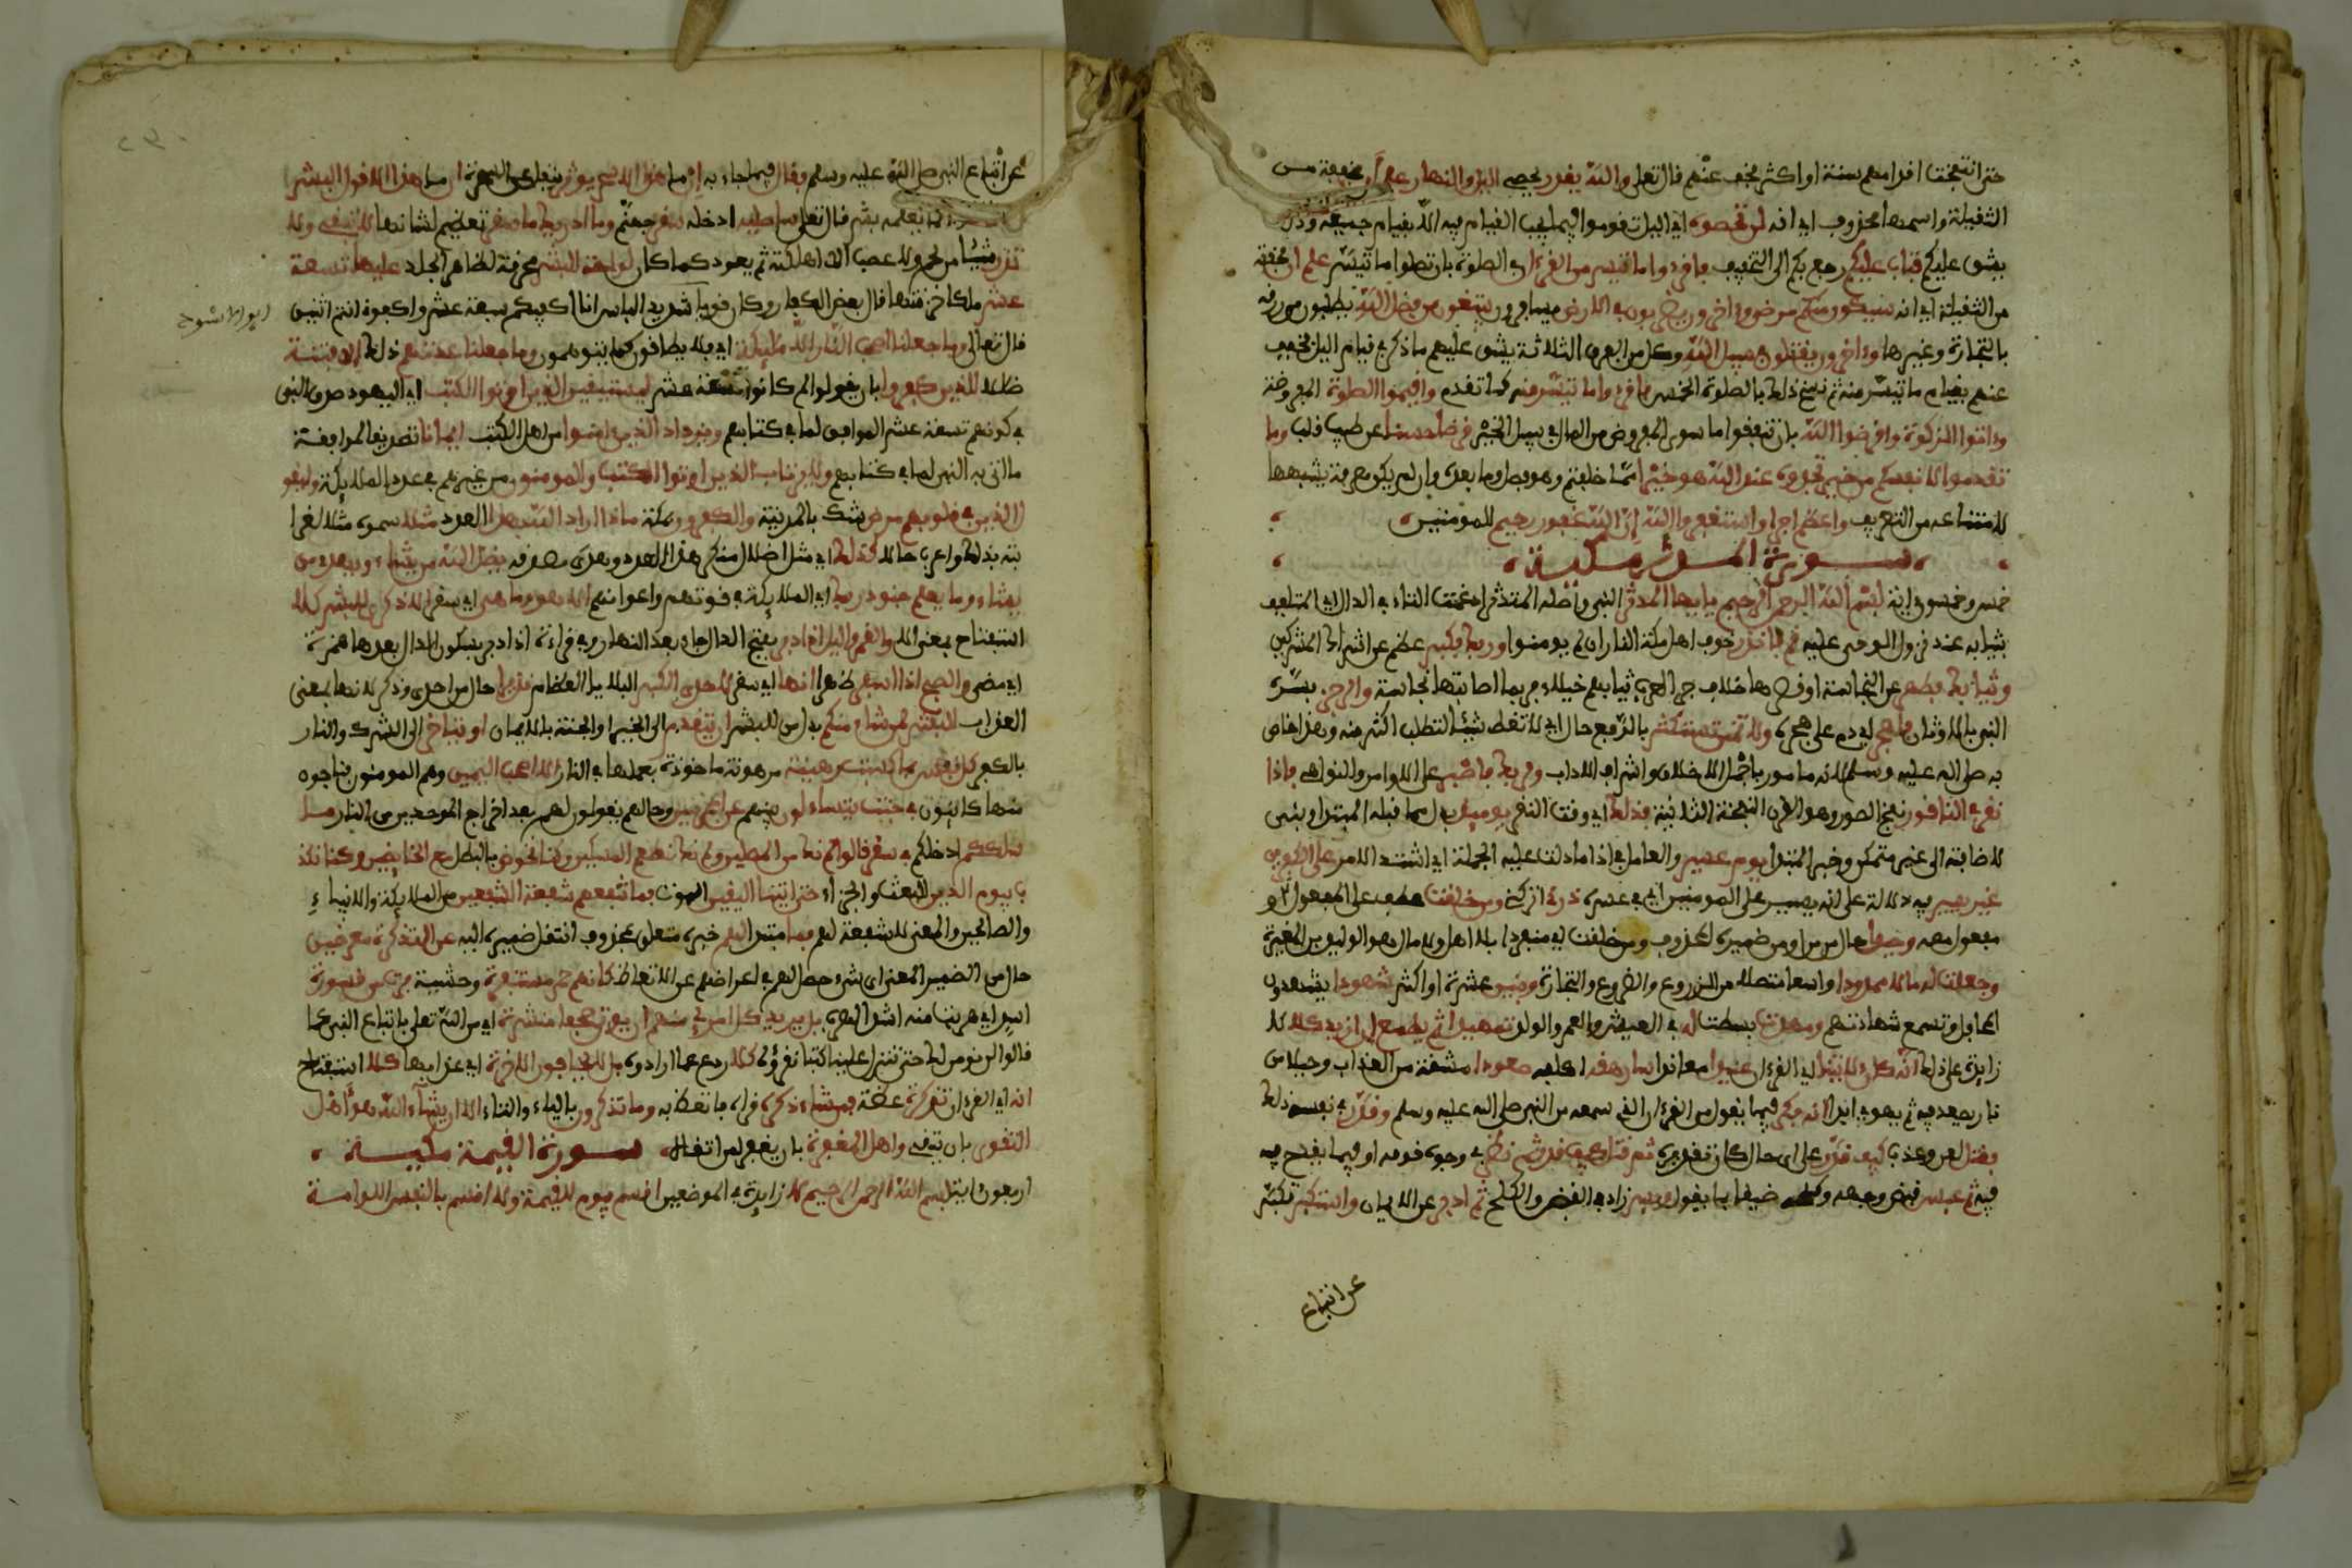 حتى انتفخت اقدامهم سنة او اكثر فخفف عنهم قال تعلى والله يقدر يحصي اليل والنهار علم ان مخففة من
الثقيلة واسمها محذوف اي انه لن تحصوه اي اليل لتقوموا فيما يجب القيام فيه الا بقيام جميعه وذلك
يشق عليكم فتاب عليكم رجع بكم الى التخفيف فاقرءوا ما تيسر من القرءان في الصلوة بان تصلوا ما تيسر علم ان مخففة
من الثقيلة اي انه سيكون منكم مرضى وءاخرون يضربون في الارض يسافرون يبتغون من فضل الله يطلبون من رزقه
بالتجارة وغيرها وءاخرون يقتلون في سبيل الله وكل من الفرق الثلاثة يشق عليهم ما ذكر في قيام اليل فخفف
عنهم بقيام ما تيسر منه ثم نسخ ذلك بالصلوة الخمس فاقرءوا ما تيسر منه كما تقدم واقيموا الصلوة المفروضة
وءاتوا الزكوة واقرضوا الله بان تنفقوا ما سوى المفروض من المال في سبيل الخير قرضا حسنا عن طيب قلب وما
تقدموا لانفسكم من خير تجدوه عند الله هو خيرا مما خلفتم وهو فصل وما بعده وان لم يكن معرفة يشبهها
لامتناعه من التعريف واعظم اجرا واستغفروا الله ان الله غفور رحيم للمومنين
سورة المدثر مكية
خمس وخمسون اية بسم الله الرحمن الرحيم يايها المدثر النبي واصله المتدثر ادغمت التاء في الدال اي المتلفف
بثيابه عند نزول الوحي عليه قم فانذر خوف اهل مكة النار ان لم يومنوا وربك فكبر عظم عن اشراك المشركين
وثيابك فطهر عن النجاسة او قصرها خلاف جر العرب ثيابهم خيلاء فربما اصابتها نجاسة والرجز فسره
النبي بالاوثان فاهجر اي دم على هجره ولا تمنن تستكثر بالرفع حال اي لا تعط شيئا لتطلب اكثر منه وهذا خاص
به صلى الله عليه وسلم لانه مامور باجمل الاخلاق واشرف الاداب ولربك فاصبر على الاوامر والنواهي فاذا
نقر في الناقور نفخ الصور وهو القرن النفخة الثانية فذلك اي وقت النقر يوميذ بدل مما قبله المبتدا وبني
لاضافته الى غير متمكن وخبر المبتدا يوم عسير والعامل في اذا ما دلت عليه الجملة اي اشتد الامر على الكفرين
غير يسير فيه دلالة على انه يسير على المومنين اي في عسره ذرني اتركني ومن خلقت عطف على المفعول او
مفعول معه وحيدا حال من من او من ضميره المحذوف من خلقت اي منفردا بلا اهل ولا مال هو الوليد بن المغيرة
وجعلت له مالا ممدودا واسعا متصلا من الزروع والضروع والتجارة وبنين عشرة او اكثر شهودا يشهدون
المحافل وتسمع شهادتهم ومهدت بسطت له في العيش والعمر والولد تمهيدا ثم يطمع ان ازيد كلا لا
ازيده على ذلك انه كان لاياتنا اي القرءان عنيدا معاندا سارهقه اكلفه صعودا مشقة من العذاب او جبلا من
نار يصعد فيه ثم يهوي ابدا انه فكر فيما يقول من القرءان الذي سمعه من النبي صلى الله عليه وسلم وقدر في نفسه ذلك
فقتل لعن وعذب كيف قدر على اي حال كان تقديره ثم قتل كيف قدر ثم نظر في وجوه قومه او فيما يقدح به
فيه ثم عبس قبض وجهه وكلحه ضيقا بما يقول وبسر زاد في القبض والكلح ثم ادبر عن الايمان واستكبر تكبر
عن اتباع
عن اتباع النبي صلى الله عليه وسلم فقال فيما جاء به ان ما هذا الا سحر يوثر ينقل عن السحرة ان ما هذا الا قول البشر
انما يعلمه بشر قال تعلى ساصليه ادخله سقر جهنم وما ادريك ما سقر تعظيم لشانها لا تبقي ولا
تذر شيئا من لحم ولا عصب الا اهلكته ثم يعود كما كان لواحة للبشر محرقة لظاهر الجلد عليها تسعة
عشر ملكا خزنتها قال بعض الكفار وكان قويا شديد الباس انا اكفيكم سبعة عشر واكفوني انتم اثنين
ابو الاشوح
قال تعالى وما جعلنا اصحب النار الا مليكة اي فلا يطاقون كما يتوهمون وما جعلنا عدتهم ذلك الا فتنة
ضلالا للذين كفروا بان يقولوا لم كانوا تسعة عشر ليستيقن الذين اوتوا الكتب اي اليهود صدق النبي
في كونهم تسعة عشر الموافق لما في كتابهم ويزداد الذين ءامنوا من اهل الكتب ايمانا تصديقا لموافقة
ما اتى به النبي لما في كتابهم ولا يرتاب الذين اوتوا الكتب والمومنون من غيرهم في عدد المليكة وليقول
الذين في قلوبهم مرض شك بالمدينة والكفرون بمكة ماذا اراد الله بهذا العدد مثلا سموه مثلا لغرا
بته بذلك واعرب حالا كذلك اي مثل اضلال منكر هذا العدد وهدى مصدقه يضل الله من يشاء ويهدي من
يشاء وما يعلم جنود ربك اي المليكة في قوتهم واعوانهم الا هو وما هي اي سقر الا ذكرى للبشر كلا
استفتاح بمعنى الا والقمر واليل اذا دبر بفتح الدال جاء بعد النهار وفي قراءة اذ ادبر بسكون الدال بعدها همزة
اي مضى والصبح اذا اسفر ظهر انها اي سقر لاحدى الكبر البلايا العظام نذيرا حال من احدى وذكر لانها بمعنى
العذاب للبشر لمن شاء منكم بدل من للبشر ان يتقدم الى الخير او الجنة بالايمان او يتاخر الى الشرك والنار
بالكفر كل نفس بما كسبت رهينة مرهونة ماخوذة بعملها في النار الا اصحب اليمين وهم المومنون فناجون
منها كائنون في جنت يتساءلون بينهم عن المجرمين وحالهم يقولون لهم بعد اخراج الموحدين من النار ما
سلككم ادخلكم في سقر قالوا لم نك من المصلين ولم نك نطعم المسكين وكنا نخوض بالبطل مع الخايضين وكنا نكذ
ب بيوم الدين البعث والجزاء حتى اتينا اليقين الموت فما تنفعهم شفعة الشفعين من المليكة والانبياء
والصالحين والمعنى لا شفعة لهم فما مبتدا لهم خبره متعلق بمحذوف انتقل ضميره اليه عن التذكرة معرضين
حال من الضمير المعنى اي شيء حصل لهم في اعراضهم عن الاتعاظ كانهم حمر مستنفرة وحشية فرت من قسورة
اسد اي هربت منه اشد الهرب بل يريد كل امرئ منهم ان يوتى صحفا منشرة اي من الله تعلى باتباع النبي كما
قالوا لن نومن لك حتى تنزل علينا كتبا نقرؤه كلا ردع عما ارادوه بل لا يخافون الاخرة اي عذابها كلا استفتاح
انه اي القرءان تذكرة عظة فمن شاء ذكره قراه فاتعظ به وما تذكرون بالياء والتاء الا ان يشاء الله هو اهل
التقوى بان يتقى واهل المغفرة بان يغفر لمن اتقاه سورة القيمة مكية
اربعون اية بسم الله الرحمن الرحيم لا زايدة في الموضعين اقسم بيوم القيمة ولا اقسم بالنفس اللوامة